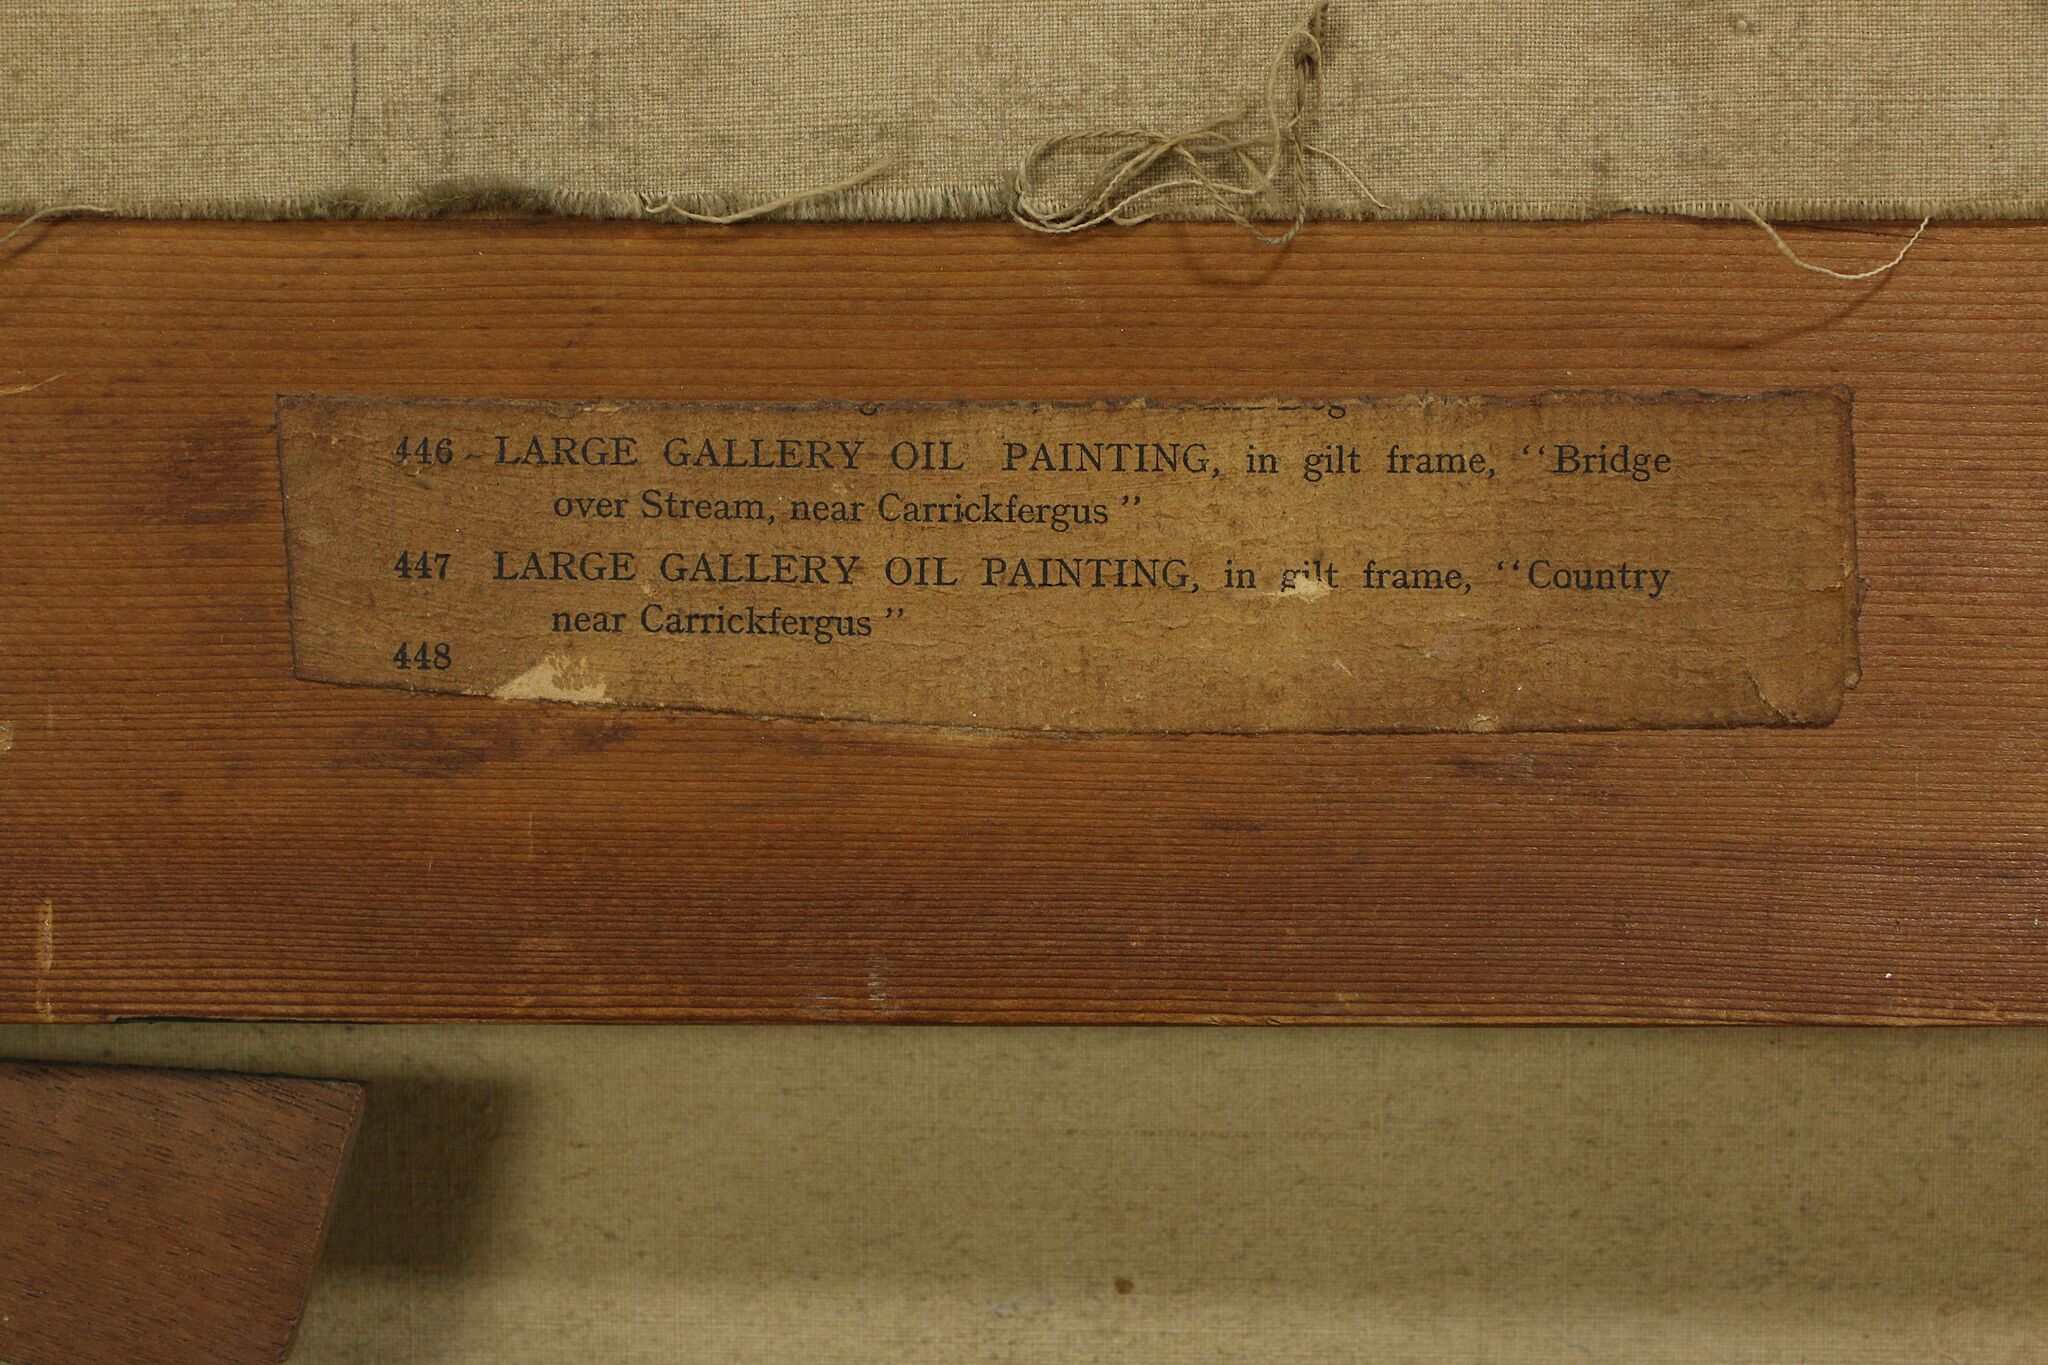 446 LARGE GALLERY OIL PAINTING, in gilt frame, “Bridge
over Stream, near Carrickfergus”
447 LARGE GALLERY OIL PAINTING, in gilt frame, “Country
near Carrickfergus”
448